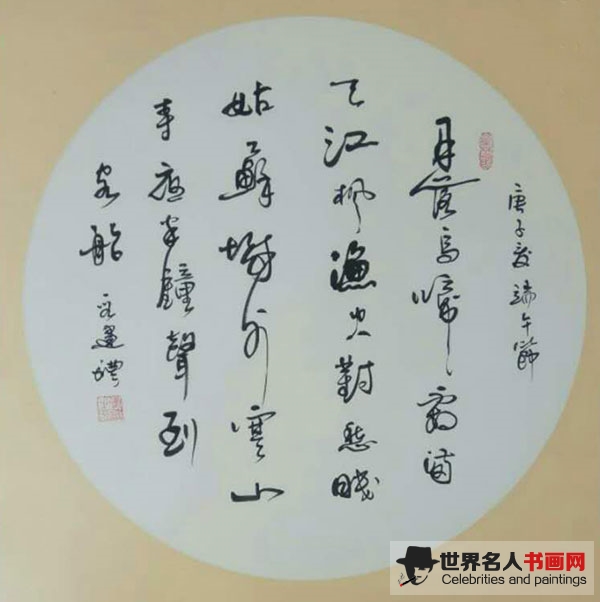 庚子夏端午節
月落烏啼霜滿
天江枫漁火對愁眠
姑蘇城外寒山
寺夜半鐘聲到
客船
世界名人书画网
Celebrities and paintings